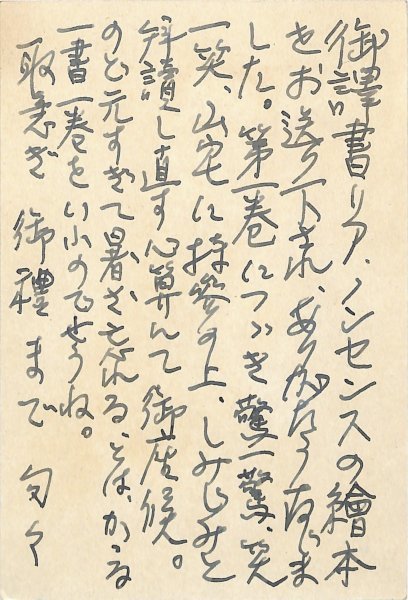 御譯書リア、ノンセンスの繪本
をお送り下され、ありがたうござい
した。第一巻につゞき驚一驚、笑
一笑、山宅に持參の上、しみじみと
拜讀し直す心算にて御座候。
のど元すぎて暑さを忘る、とは、かゝる
一書一巻をいふのでせうね。
取急ぎ 御禮まで 匆々